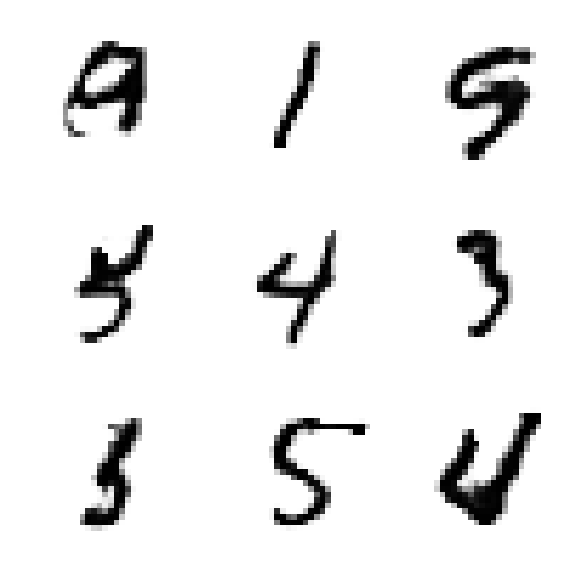 9 1 9
5 4 3
3 5 4